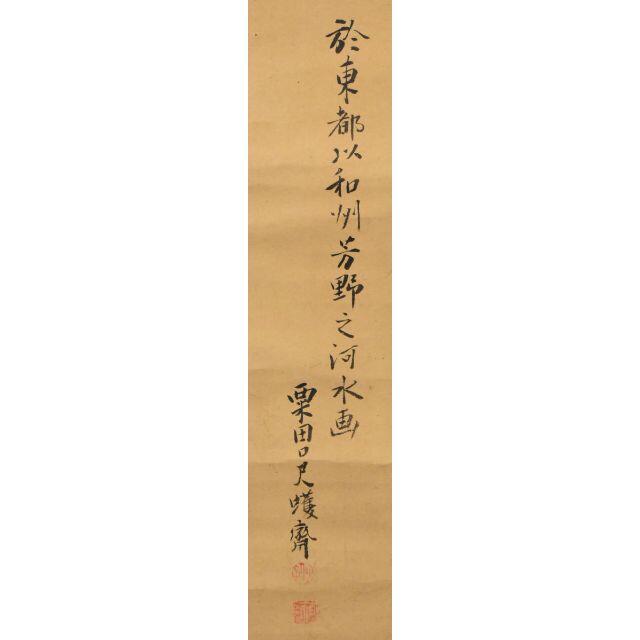 於東都以和州芳野之河水画
粟田口尺蠖齋